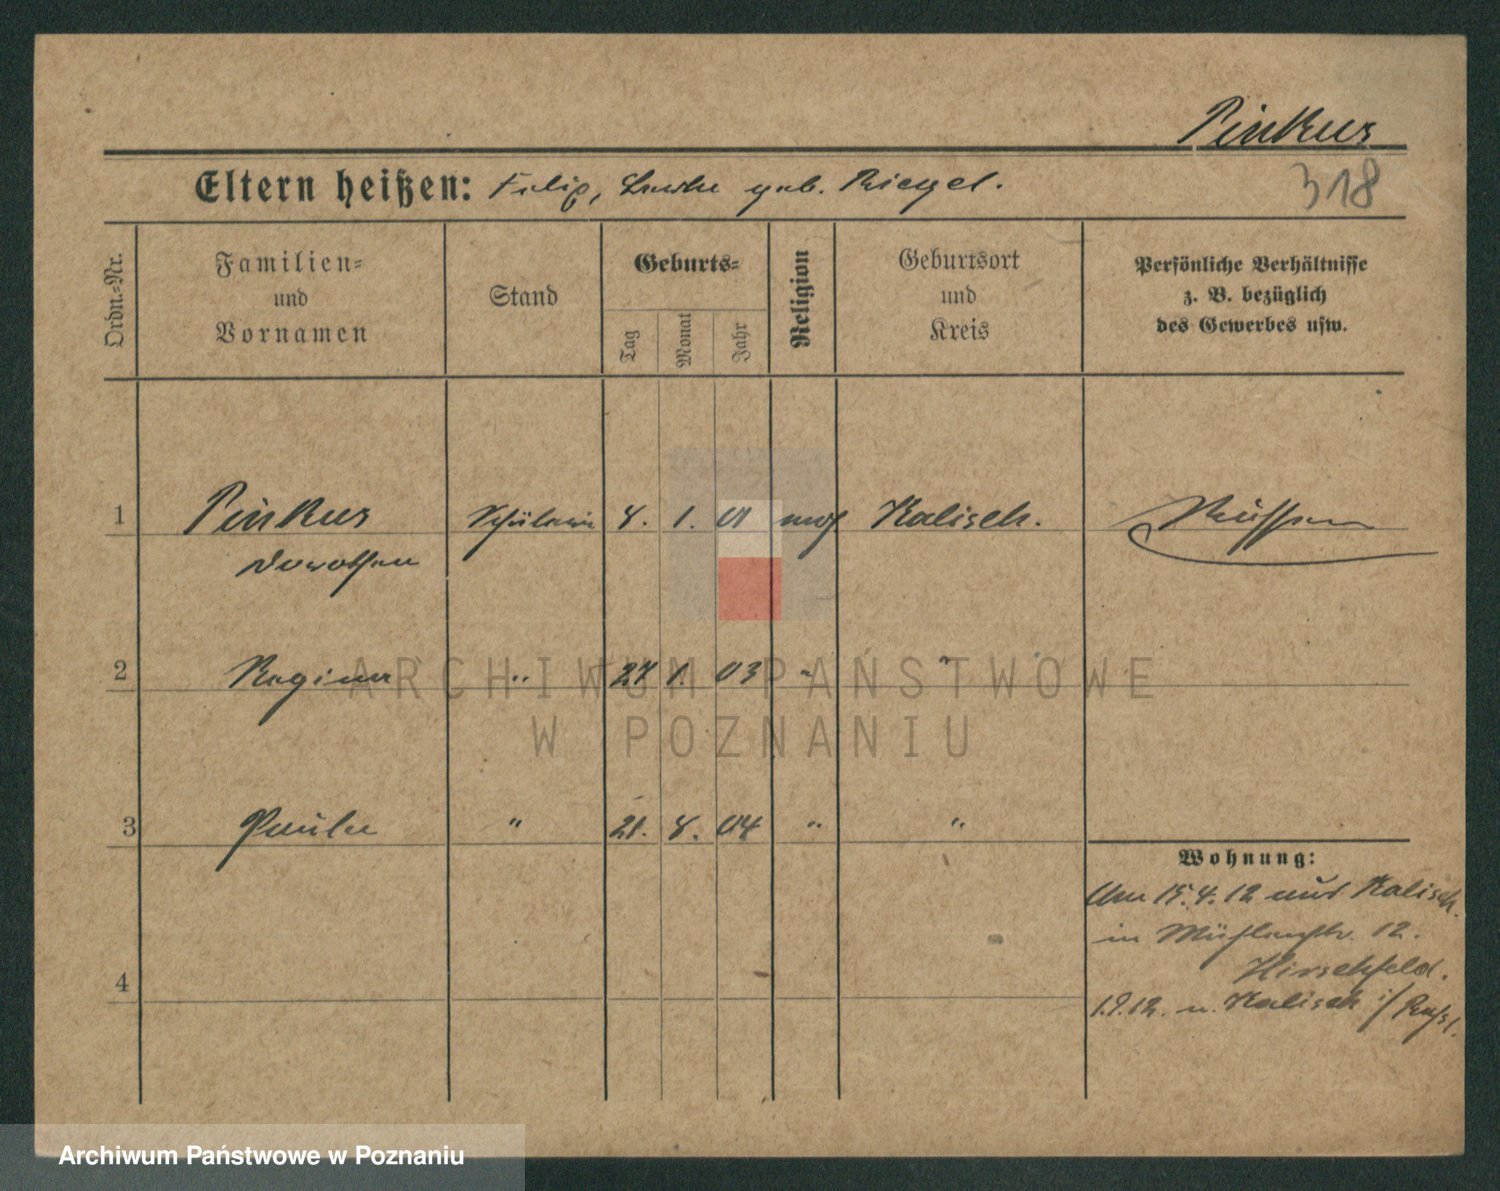 Pinkus
318
Eltern heißen: Filip, geb. Riegel.
Ordn.=Nr.
Familien=
und
Vornamen
Stand
Geburts=
Tag
Monat
Jahr
Religion
Geburtsort
und
Kreis
Persönliche Verhältnisse
z. B. bezüglich
des Gewerbes usw.
1 Pinkus Schülerin 8. 1. 01 mos Kalisch. Russin
Dorothea
2 Regina " 27 1. 03 " "
3 Paula " 21. 8. 04 " "
Wohnung:
Am 15.4.12 aus Kalisch.
in Mühlenstr. 12.
Hirschfeld.
1.9.12. n. Kalisch i/Rußl.
4
ARCHIWUM PAŃSTWOWE
W POZNANIU
Archiwum Państwowe w Poznaniu